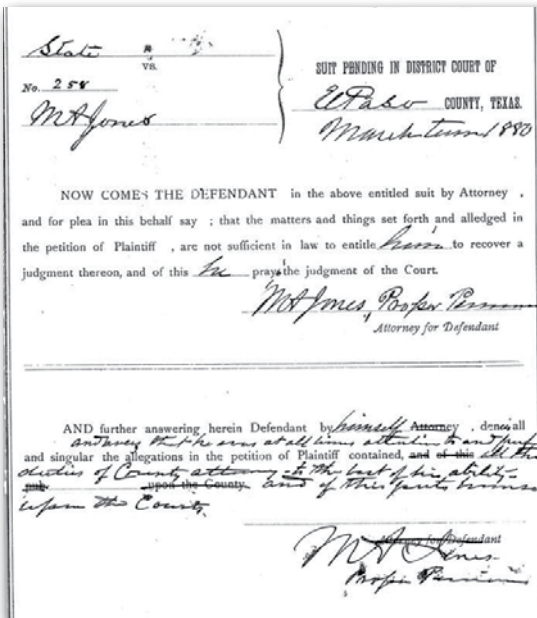 State
vs.
No. 258
M A Jones
SUIT PENDING IN DISTRICT COURT OF
El Paso COUNTY, TEXAS.
March term 1880
NOW COMES THE DEFENDANT in the above entitled suit by Attorney ,
and for plea in this behalf say ; that the matters and things set forth and alledged in
the petition of Plaintiff , are not sufficient in law to entitle him to recover a
judgment thereon, and of this he prays the judgment of the Court.
M A Jones, Proper Person
Attorney for Defendant
AND further answering herein Defendant by himself Attorney , denies all
and avers that he was at all times attentive to and
and singular the allegations in the petition of Plaintiff contained, and of this all the
duties of County attorney to the best of his ability
upon the County. and of this puts himself
upon the County
Attorney for Defendant
M A Jones
Proper Person